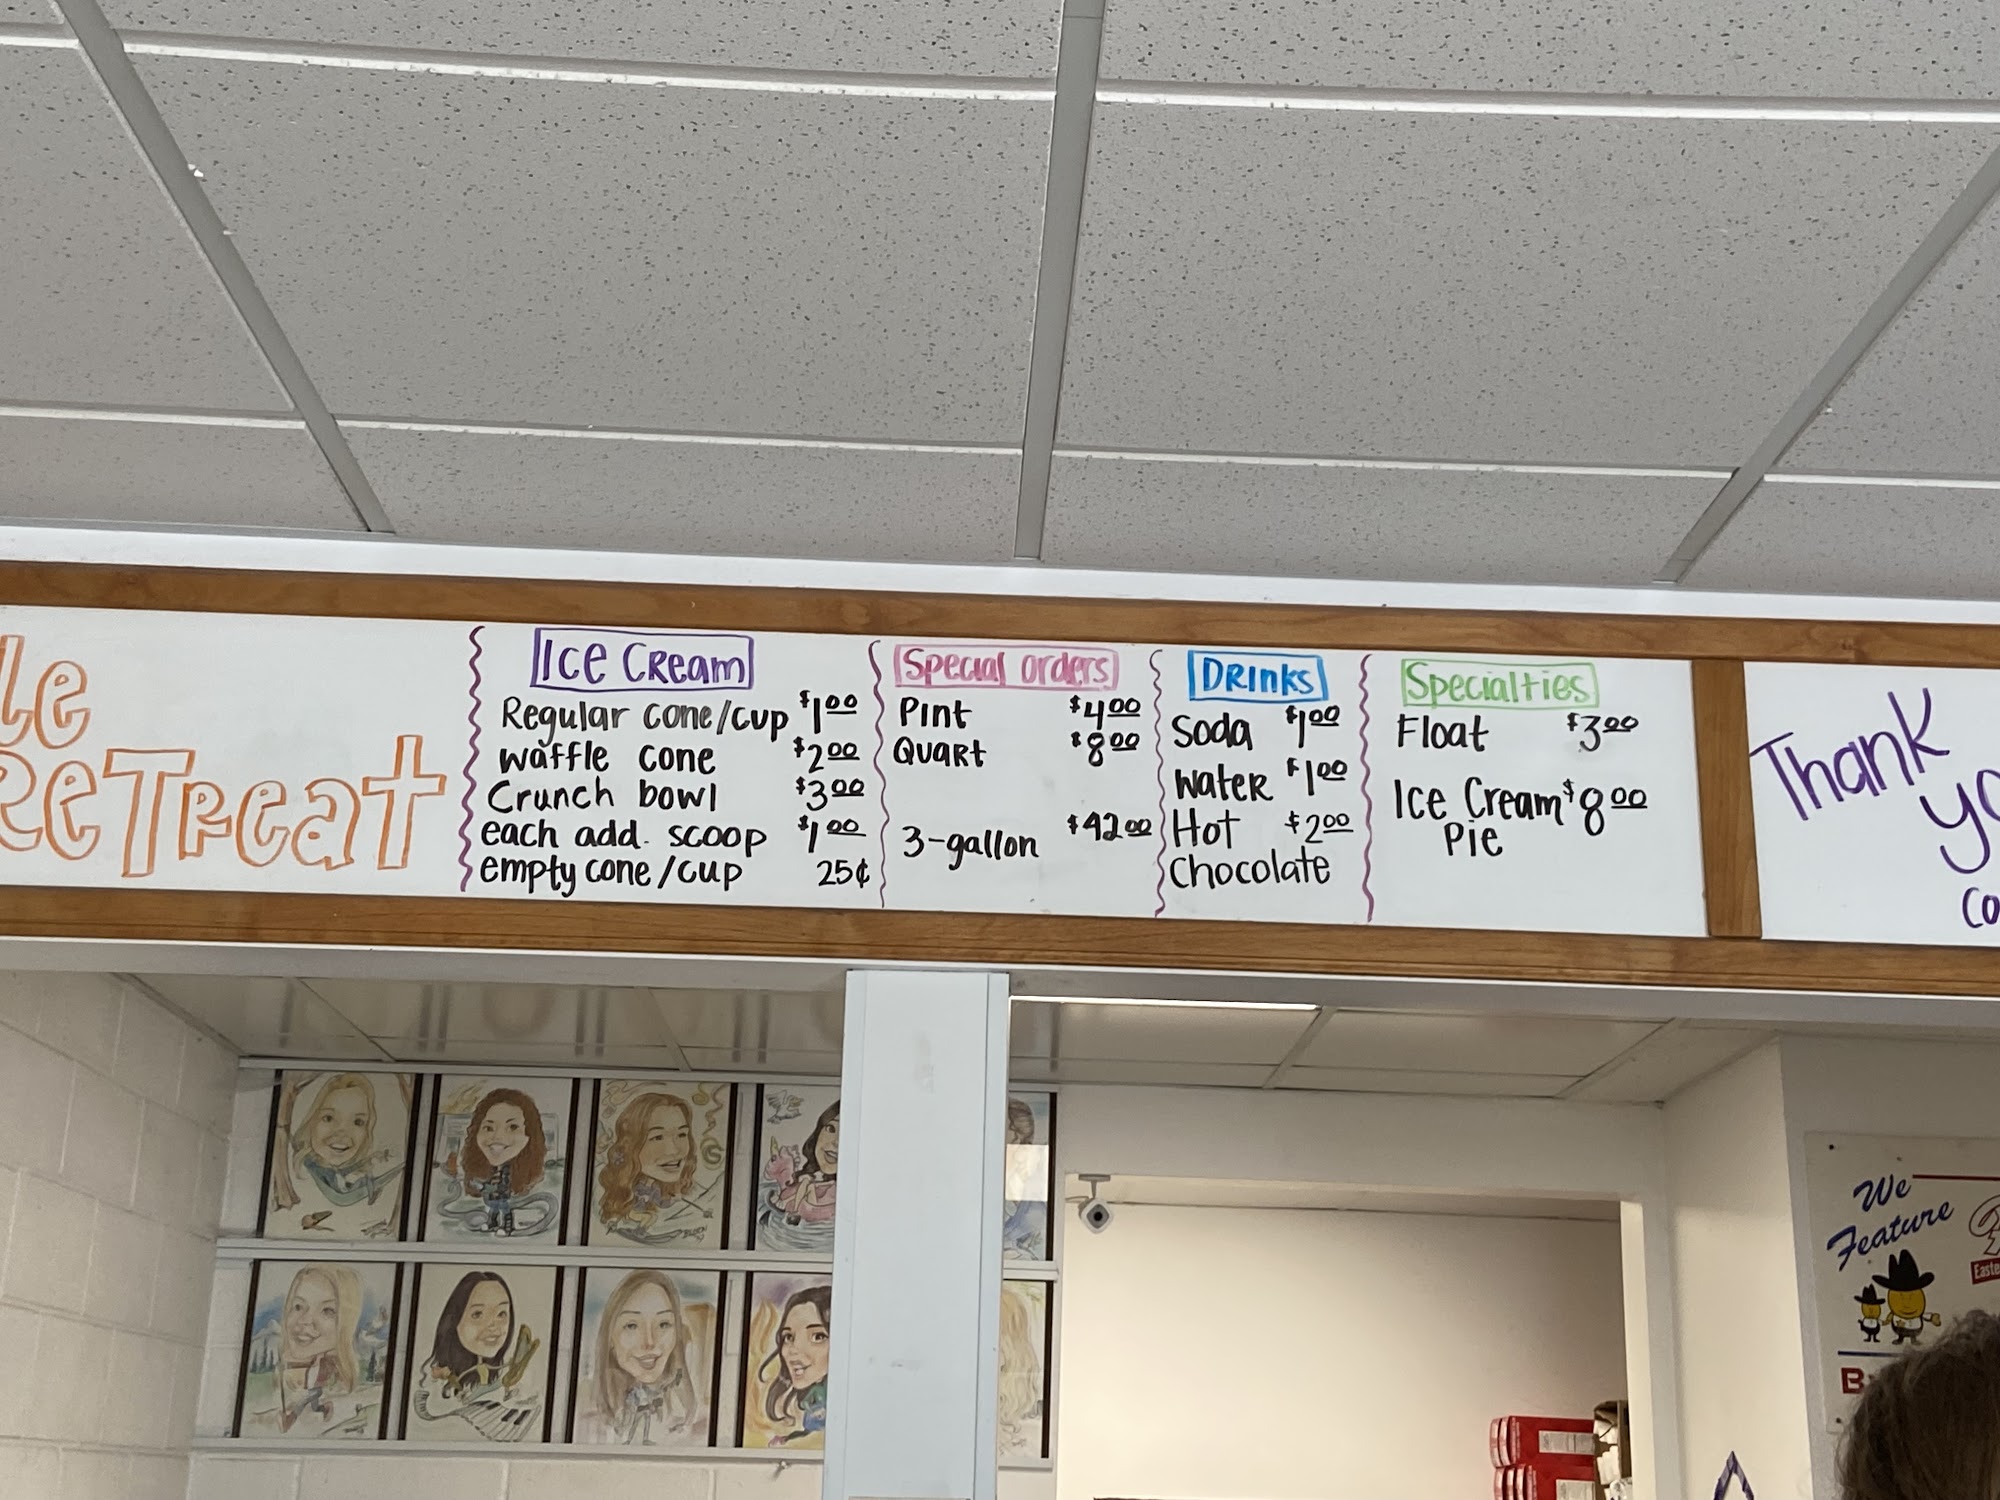 le
ReTreat
Ice Cream
Regular cone/cup $1.00
waffle cone $2.00
Crunch bowl $3.00
each add. scoop $1.00
empty cone/cup 25¢
Special orders
Pint $4.00
Quart $8.00
3-gallon $42.00
Drinks
Soda $1.00
Water $1.00
Hot $2.00
Chocolate
Specialties
Float $3.00
Ice Cream $8.00
Pie
Thank
yo
co
We
Feature
Easte
B